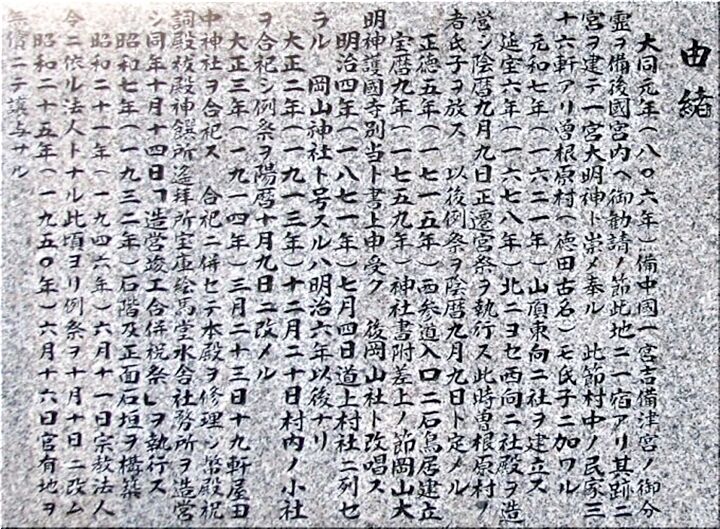 由緒
大同元年(八〇六年)備中國一宮吉備津宮ノ御分
霊ヲ備後國宮内ヘ御勧請ノ節此地ニ一宿アリ其跡ニ
宮ヲ建テ一宮大明神ト崇メ奉ル 此節村中ノ民家三
十六軒アリ曽根原村(徳田古名)モ氏子ニ加ワル
元和七年(一六二一年)山頂東向ニ社ヲ建立ス
延宝六年(一六七八年)北ニヨセ西向ニ社殿ヲ造
営シ陰暦九月九日正遷宮祭ヲ執行ス此時曽根原村ノ
者氏子ヲ放ス 以後例祭ヲ陰暦九月九日ト定メル
正徳五年(一七一五年)西参道入口ニ石鳥居建立
宝暦九年(一七五九年)神社書附差上ノ節岡山大
明神護國寺別当ト書上申受ク 後岡山社ト改唱ス
明治四年(一八七一年)七月四日道上村社ニ列セ
ラル 岡山神社ト号スルハ明治六年以後ナリ
大正二年(一九一三年)十二月二十日村内ノ小社
ヲ合祀シ例祭ヲ陽暦十月九日ニ改メル
大正三年(一九一四年)三月二十三日十九軒屋田
中神社ヲ合祀ス 合祀ニ併セテ本殿ヲ修理シ幣殿祝
詞殿祓殿神饌所遙拝所宝庫絵馬堂水舎社務所ヲ造営
シ同年十月十四日「造営竣工合併祝祭」ヲ執行ス
昭和七年(一九三二年)石階及正面石垣ヲ構築
昭和二十一年(一九四六年)六月十一日宗教法人
令ニ依ル法人トナル此頃ヨリ例祭ヲ十月十日ニ改ム
昭和二十五年(一九五〇年)六月十六日官有地ヲ
無償ニテ譲与サル